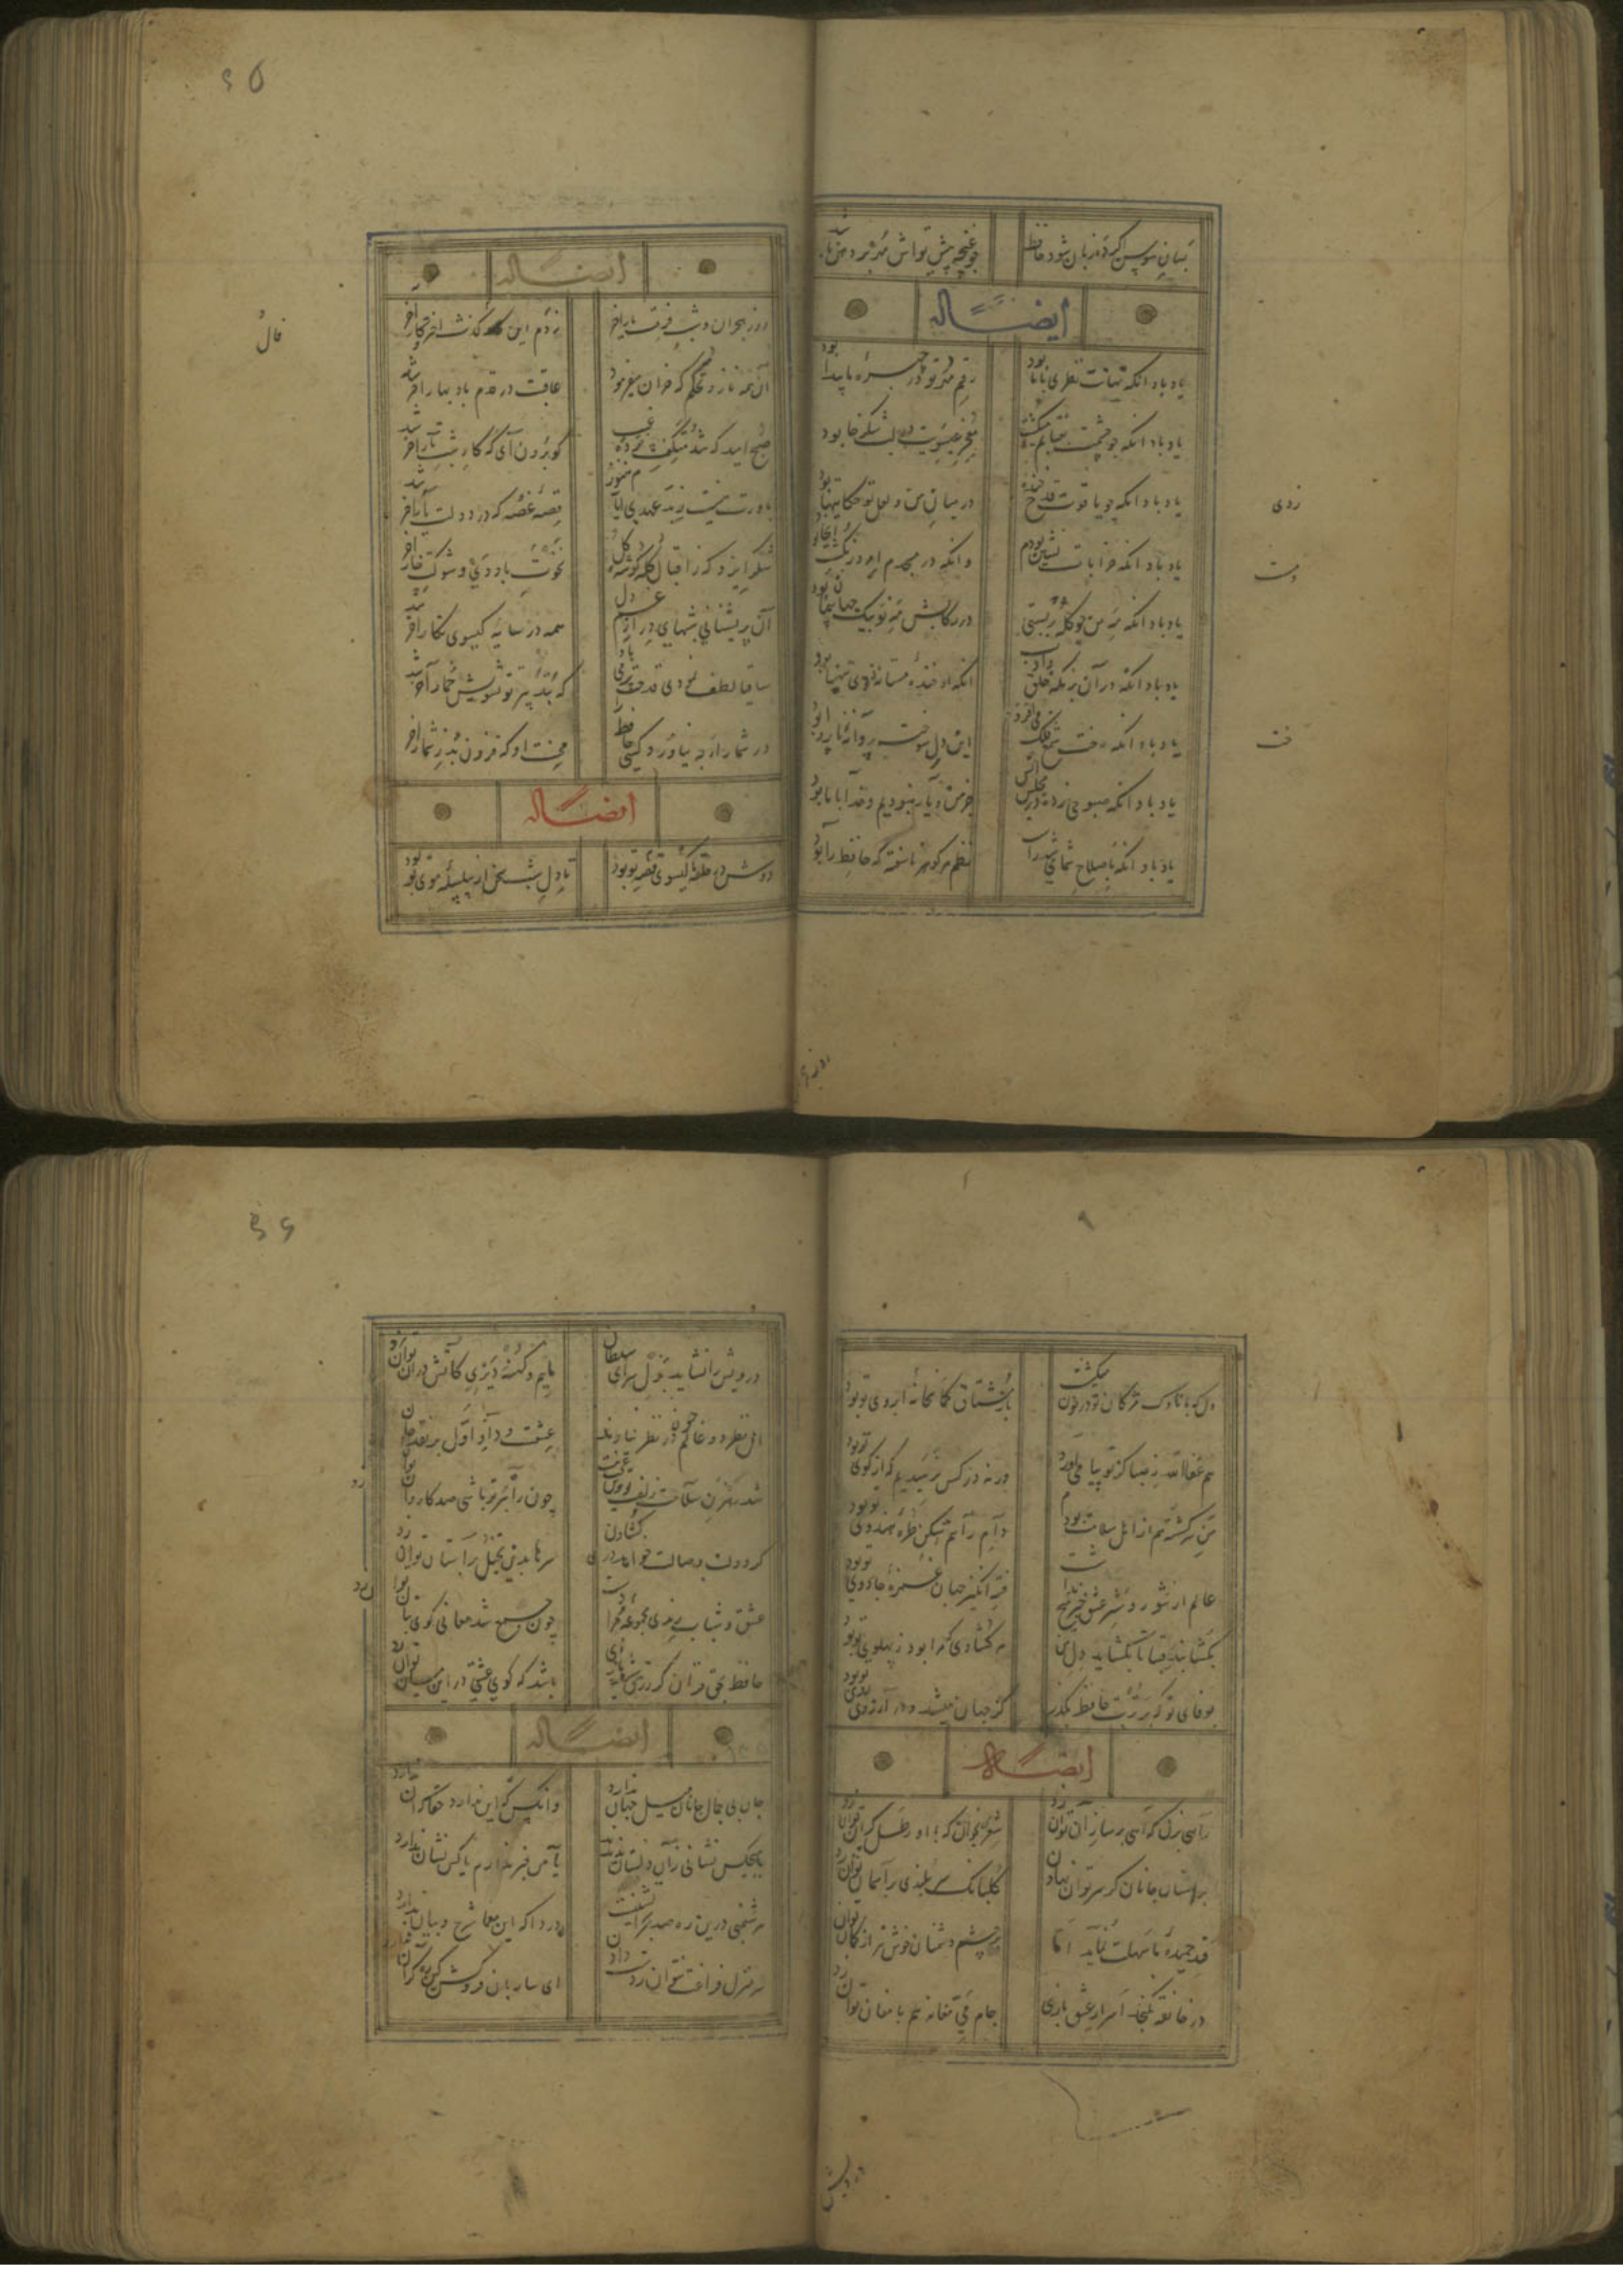 بسان سوسن اگر ده زبان شود حافظ چو غنچه پیش تواش مهر بر دهن باشد
ایضاً له
یاد باد انکه نهانت نظری با ما بود رقم مهر تو بر چهره ما پیدا بود
یاد باد انکه چو چشمت بعتابم میکشت معجز عیسویت در لب شکرخا بود
یاد باد انکه چو یاقوت قدح خنده زدی در میان من و لعل تو حکایتها بود
یاد باد انکه خرابات نشین بودم و مست وانکه در مسجدم امروز کمست انجا بود
یاد باد انکه مه من چو کله بربستی در رکابش مه نو پیک جهان پیما بود
یاد باد انکه در آن بزمکه خلق و ادب انکه او خنده مستانه زدی صهبا بود
یاد باد انکه رخت شمع طرب می افروخت این دل سوخته پروانه ناپروا بود
یاد باد انکه صبوحی زده در مجلس انس جز من و یار نبودیم و خدا با ما بود
یاد باد انکه باصلاح شما می شد راست نظم هر کوهر ناسفته که حافظ را بود
روز هجر
۶۵
ایضاً له
روز هجران و شب فرقت یار اخر شد زدم این فال کذشت اختر و کار اخر شد
آن همه ناز و تنعم که خزان میفرمود عاقبت در قدم باد بهار اخر شد
صبح امید که شد معتکف پرده غیب کو برون آی که کار شب تار اخر شد
باورم نیست ز بدعهدی ایام هنوز قصه غصه که در دولت یار اخر شد
شکر ایزد که ز اقبال کله کوشه کل نخوت باد دی و شوکت خار اخر شد
آن پریشانی شبهای دراز و غم دل همه در سایه کیسوی نکار اخر شد
ساقیا لطف نمودی قدحت پر می باد که بتدبیر تو تشویش خمار آخر شد
در شمار ار چه نیاورد کسی حافظ را محنت او که فزون بد ز شمار اخر شد
ایضاً له
دوش در حلقه ما کیسوی قصه تو بود تا دل شب سخن از سلسله موی تو بود
فال
دل که با ناوک مژکان تو در خون میکشت باز مشتاق کمانخانه ابروی تو بود
هم عفا الله ز صبا کز تو پیامی اورد ورنه در کس نرسیدیم که از کوی تو بود
من سرکشته هم از اهل سلامت بودم دام راهم شکن طره هندوی تو بود
عالم از شور و شر عشق خبر هیچ نداشت فتنه انکیز جهان غمزه جادوی تو بود
بکشا بند قبا تا بکشاید دل من که کشادی که مرا بود ز پهلوی تو بود
بوفای تو که بر تربت حافظ بکذر کز جهان میشد و در آرزوی روی تو بود
ایضاً له
راهی بزن که آهی بر ساز آن توان زد شعری بخوان که با او رطل کران توان زد
بر استان جانان کر سر توان نهادن کلبانک سربلندی بر آسمان توان زد
قد خمیده ما سهلت نماید اما بر چشم دشمنان خوش تیر از کمان توان زد
در خانقه نکنجد اسرار عشق بازی جام می مغانه هم با مغان توان زد
درویش
۶۶
درویش را نشاید نزل سرای سلطان ماییم و کهنه دلقی کاتش در آن توان زد
اهل نظر دو عالم در نظر نیاورند عشقست و داو اول بر نقد جان
شد رهزن سلامت زلف تو وین عجب نیست چون راهزن تو باشی صد کاروان
کر دولت وصالت خواهد دری کشادن سرها بدین تخیل بر آستان توان زد
عشق و شباب و رندی مجموعه مرادست چون جمع شد معانی کوی بیان توا
حافظ بحق قرآن کز زرق شید بازای باشد که کوی عیشی در این میان توان زد
ایضاً له
جان بی جمال جانان میل جهان ندارد وانکس که این ندارد حقا که آن ندارد
با هیچکس نشانی زان دلستان ندیدم یا من خبر ندارم یا کس نشان ندارد
هر شبنمی درین ره صد بحر آتشینست دردا که این معما شرح و بیان ندارد
سر منزل فراغت نتوان ز دست دادن ای ساربان فروکش کین ره کران ندارد